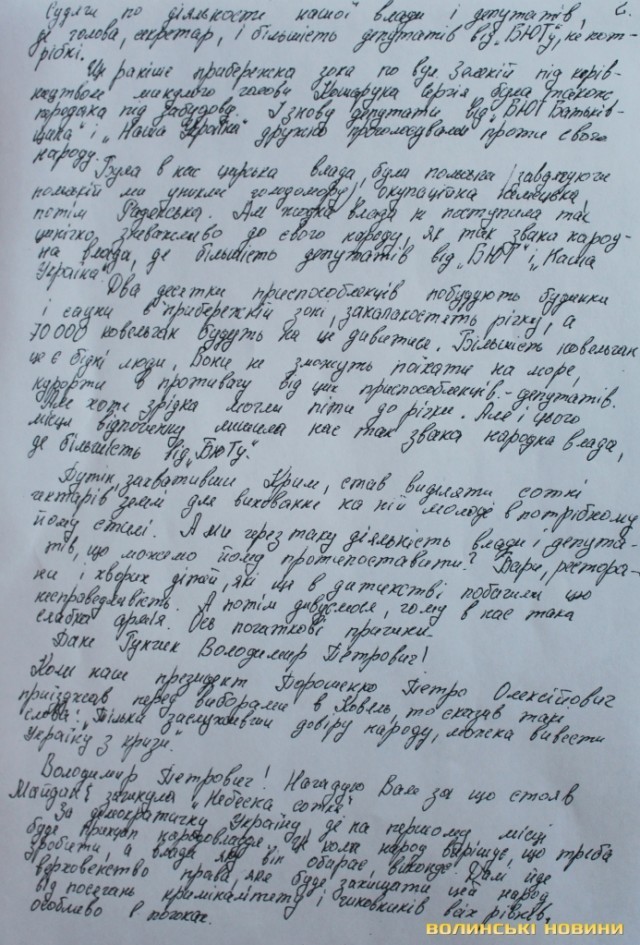 2.
Судячи по діяльности нашої влади і депутатів,
де голова, секретар, і більшість депутатів від „БЮТу", не пот-
рібні.
Ще раніше прибережна зона по вул. Заломій під керів-
ництвом минулого голови Кошарука Сергія була також
передана під забудову. І знову депутати від „БЮТ Батьків-
щина" і „Наша Україна" дружно проголосували проти свого
народу.
Була в нас царська влада, була польська (завдякуючи
полякам ми уникли голодомору), окупаційна німецька,
потім Радянська. Але жодна влада не поступила так
цинічно, зневажливо до свого народу, як так звана народ-
на влада, де більшість депутатів від „БЮТ" і „Наша
Україна".
Два десятки приспособленців побудують будинки
і сауни в прибережній зоні, захаластять річку, а
70 000 ковельчан будуть на це дивитися. Більшість ковельчан
це є бідні люди. Вони не зможуть поїхати на море,
курорти в противагу від цих приспособленців-депутатів.
Але хоть зрідка могли піти до річки. Але і цього
місця відпочинку лишила нас так звана народна влада,
де більшість від „БЮТу".
Путін, захвативши Крим, став виділяти сотні
гектарів землі для виховання на ній молоді в потрібному
йому стилі. А ми через таку діяльність влади і депута-
тів, що можемо йому протипоставити? Бари, ресторани
і хворих дітей, які ще в дитинстві побачили цю
несправедливість. А потім дивуємося, чому в нас така
слабка армія. Ось початкові причини.
Пане Гунчик Володимир Петрович!
Коли наш президент Порошенко Петро Олексійович
приїзджав перед виборами в Ковель, то сказав такі
слова: „Тільки заслуживши довіру народу, можна вивести
Україну з кризи".
Володимир Петрович! Нагадую Вам за що стояв
Майдан і загинула „Небесна сотня"
За демократичну Україну де на першому місці
буде принцип народовладдя. Це коли народ вирішує, що треба
зробити, а влада яку він обирає, виконує. Далі йде
верховенство права, яке буде захищати цей народ
від посягань криміналітету і чиновників всіх рівнів,
особливо в погонах.
ВОЛИНСЬКІ НОВИНИ